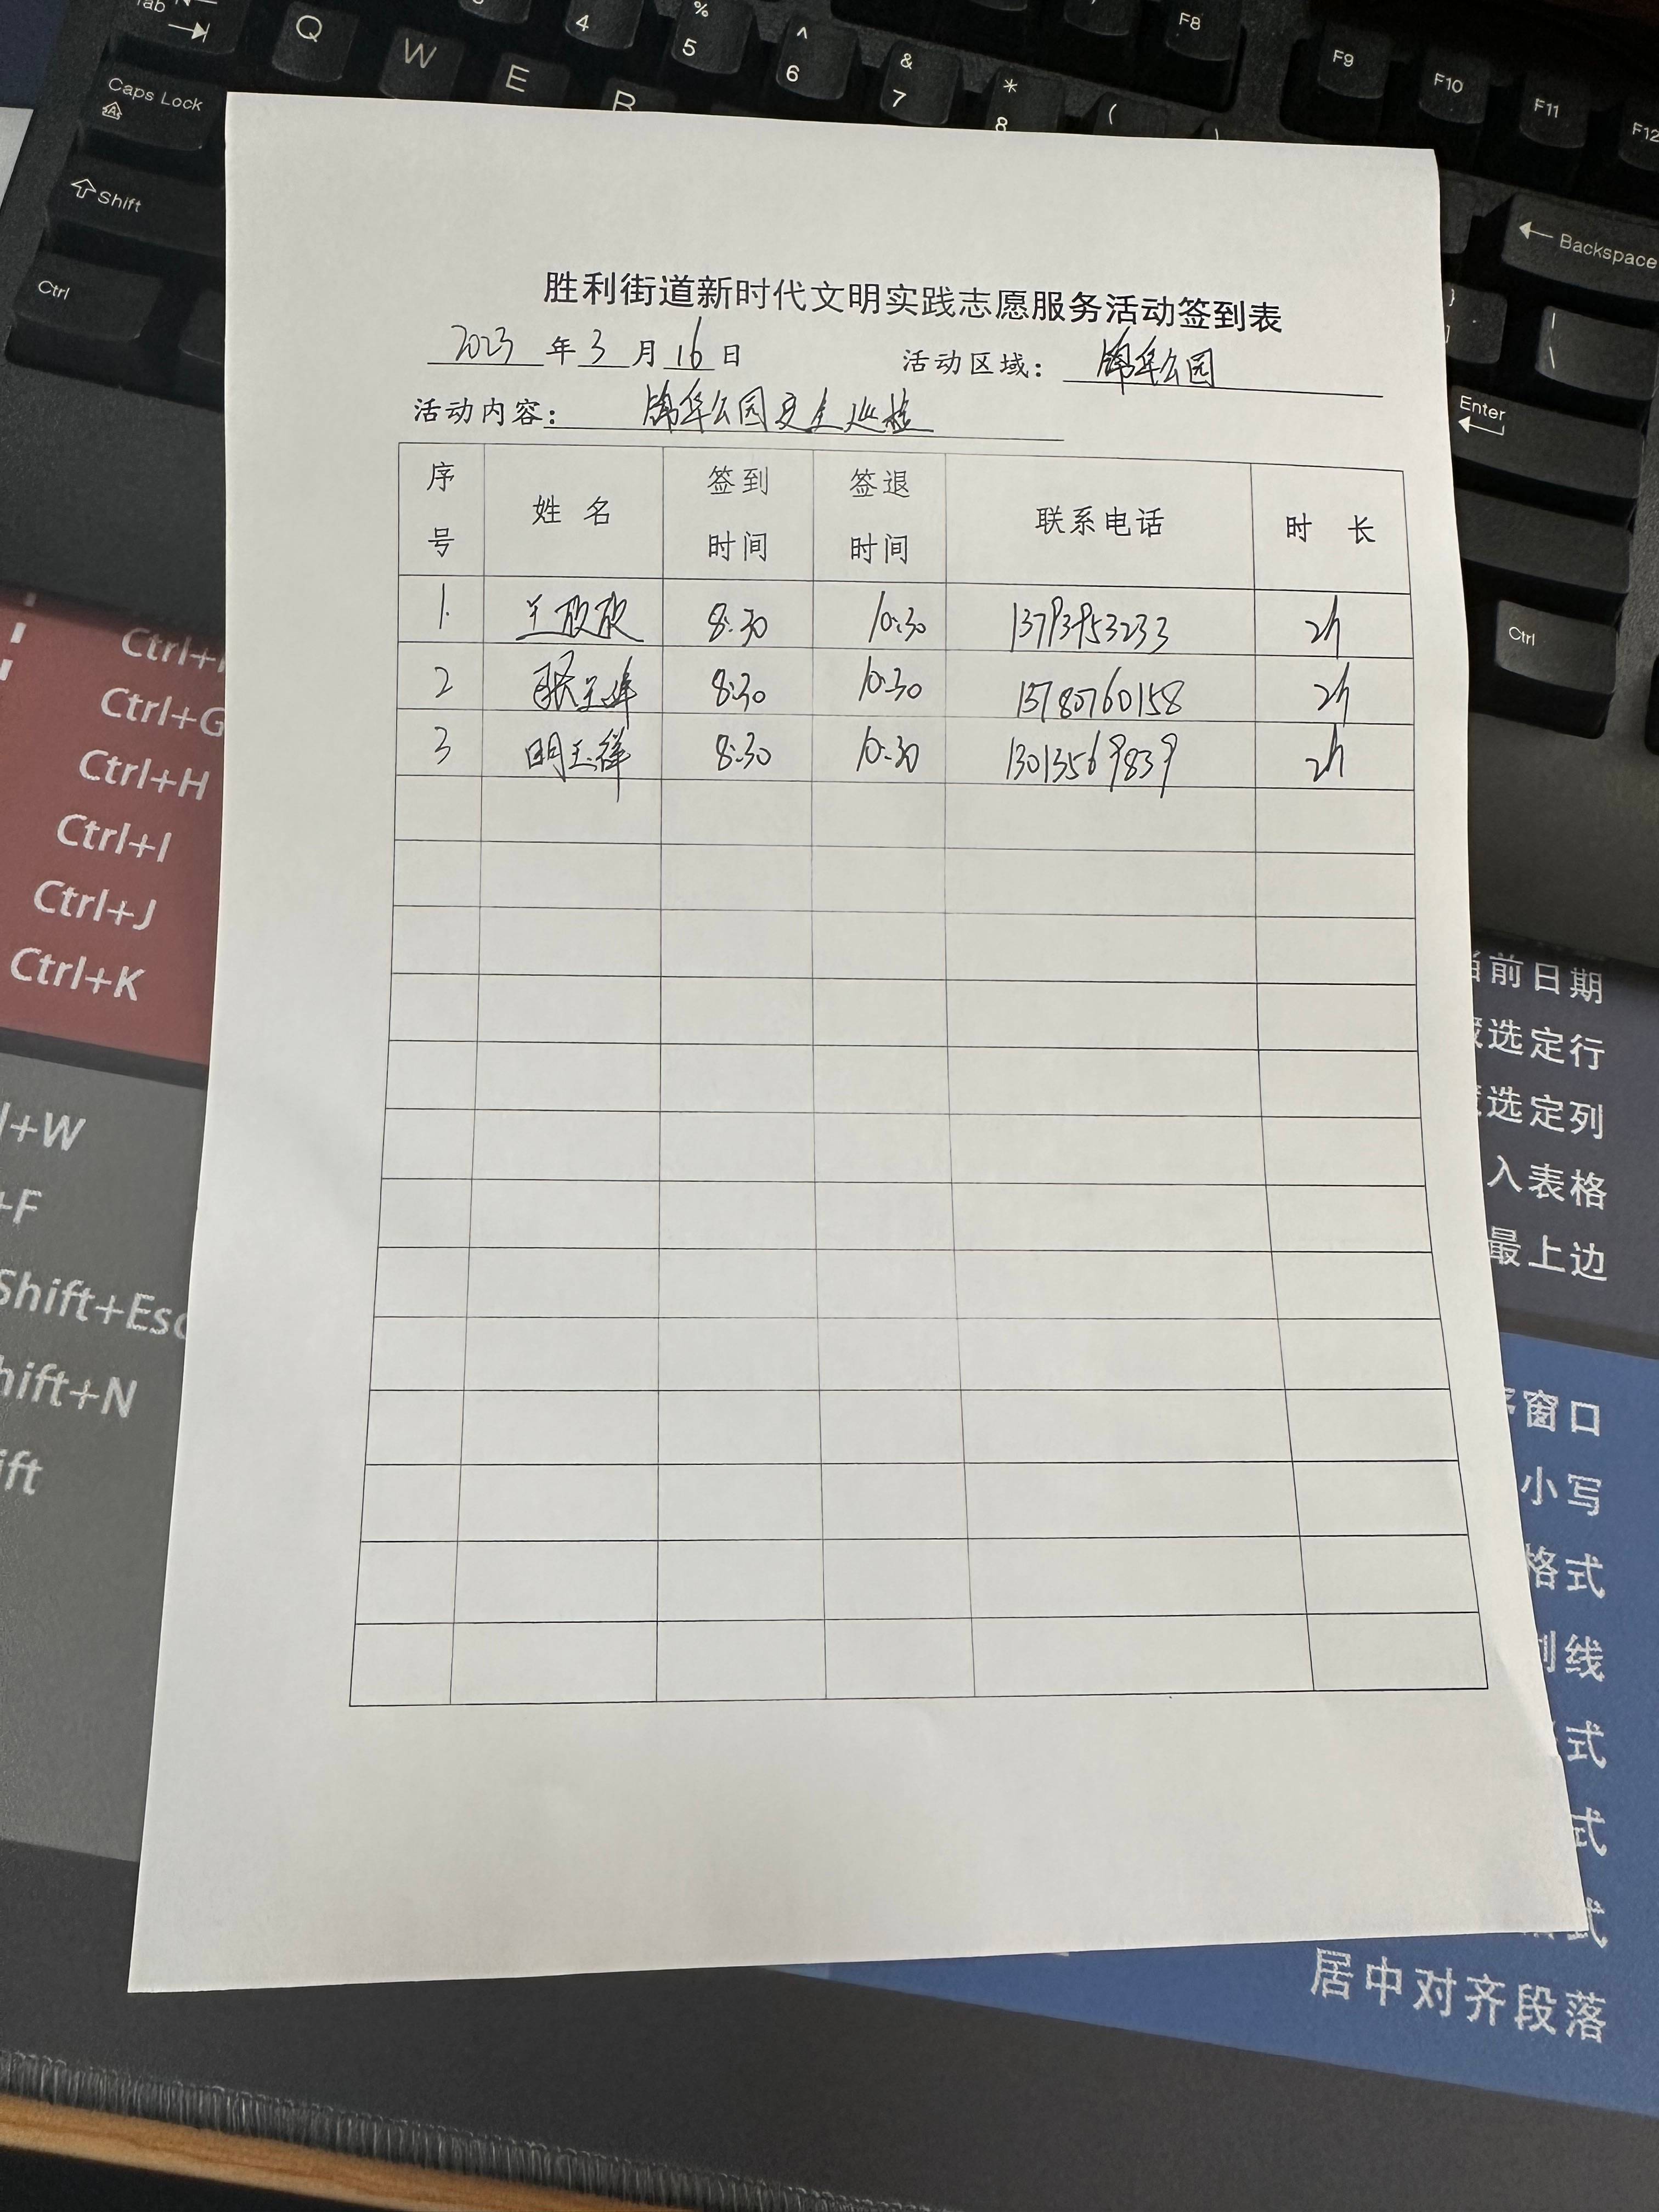 Tab
Q
W
E
R
4
%
5
^
6
&
7
*
8
(
)
F8
F9
F10
F11
F12
Caps Lock
Shift
Ctrl
Backspace
}
|
\
Enter
Ctrl
胜利街道新时代文明实践志愿服务活动签到表
2023 年 3 月 16 日 活动区域: 锦华公园
活动内容: 锦华公园安全巡检
序号 姓名 签到时间 签退时间 联系电话 时长
1. 王欣欣 8:30 10:30 13793953233 2h
2 8:30 10:30 15780760158 2h
3 明玉祥 8:30 10:30 13013569839 2h
Ctrl+G
Ctrl+H
Ctrl+I
Ctrl+J
Ctrl+K
l+W
+F
Shift+Esc
hift+N
ift
当前日期
选定行
选定列
入表格
最上边
窗口
小写
格式
线
式
式
式
居中对齐段落